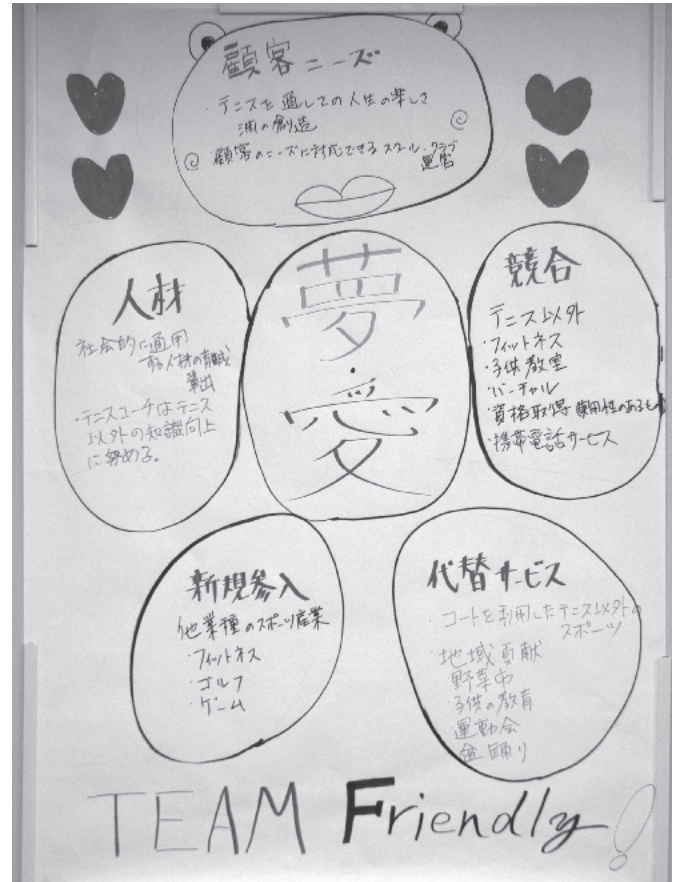 顧客ニーズ
・テニスを通しての人生の楽しさ
の創造
・顧客のニーズに対応できるスクール・クラブ
運営
人材
社会的に通用
する人材の育成
輩出
・テニスコーチはテニス
以外の知識向上
に努める。
夢
・
愛
競合
テニス以外
・フィットネス
・子供教室
・バーチャル
・資格取得 専用性のあるもの
・携帯電話サービス
新規参入
他業種のスポーツ産業
・フィットネス
・ゴルフ
・ゲーム
代替サービス
・コートを利用したテニス以外の
スポーツ
・地域貢献
野菜市
子供の教育
運動会
盆踊り
TEAM Friendly!